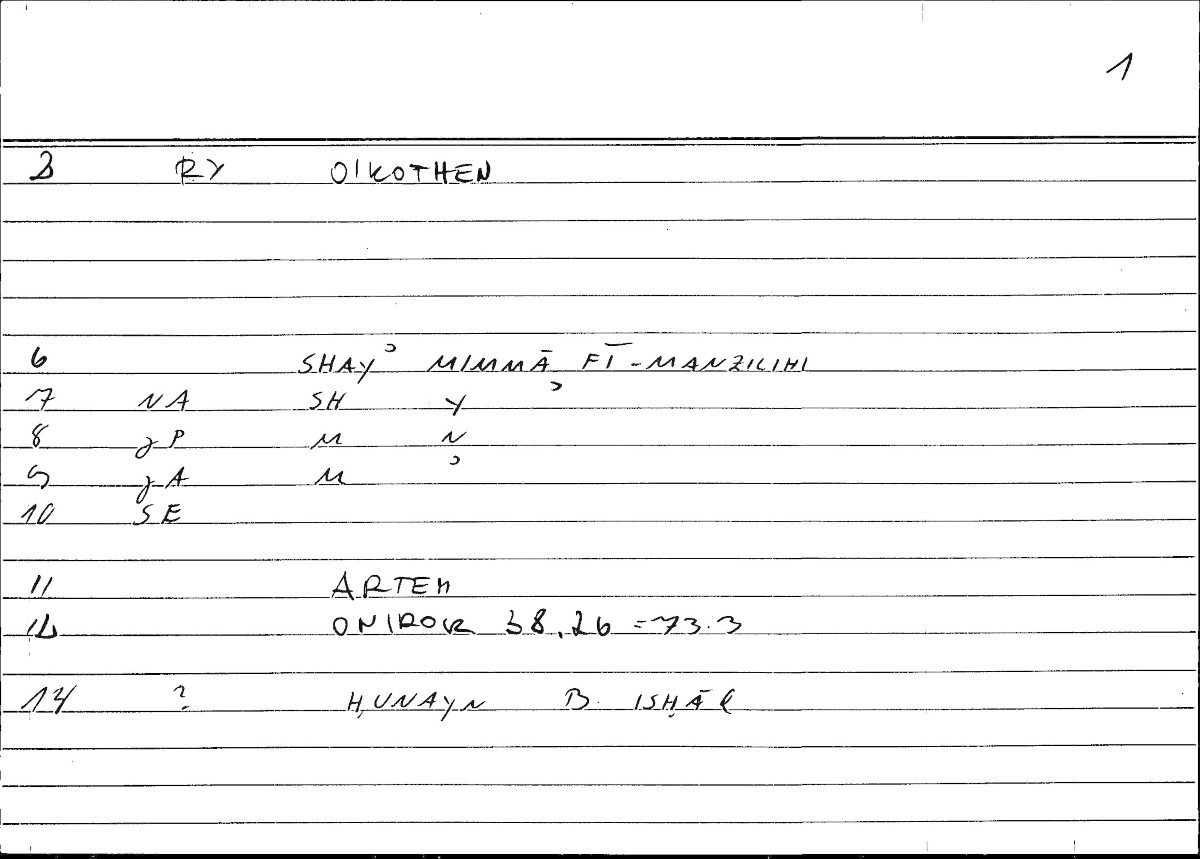 1
2 RY OIKOTHEN
6 SHAYʾ MIMMĀ FĪ-MANZILIHI
7 NA SH Y ʾ
8 gP M N
9 gA M ʾ
10 SE
11 ARTEM
12 ONIROCR 38.26 = 73.3
14 ? ḤUNAYN B. ISḤĀQ